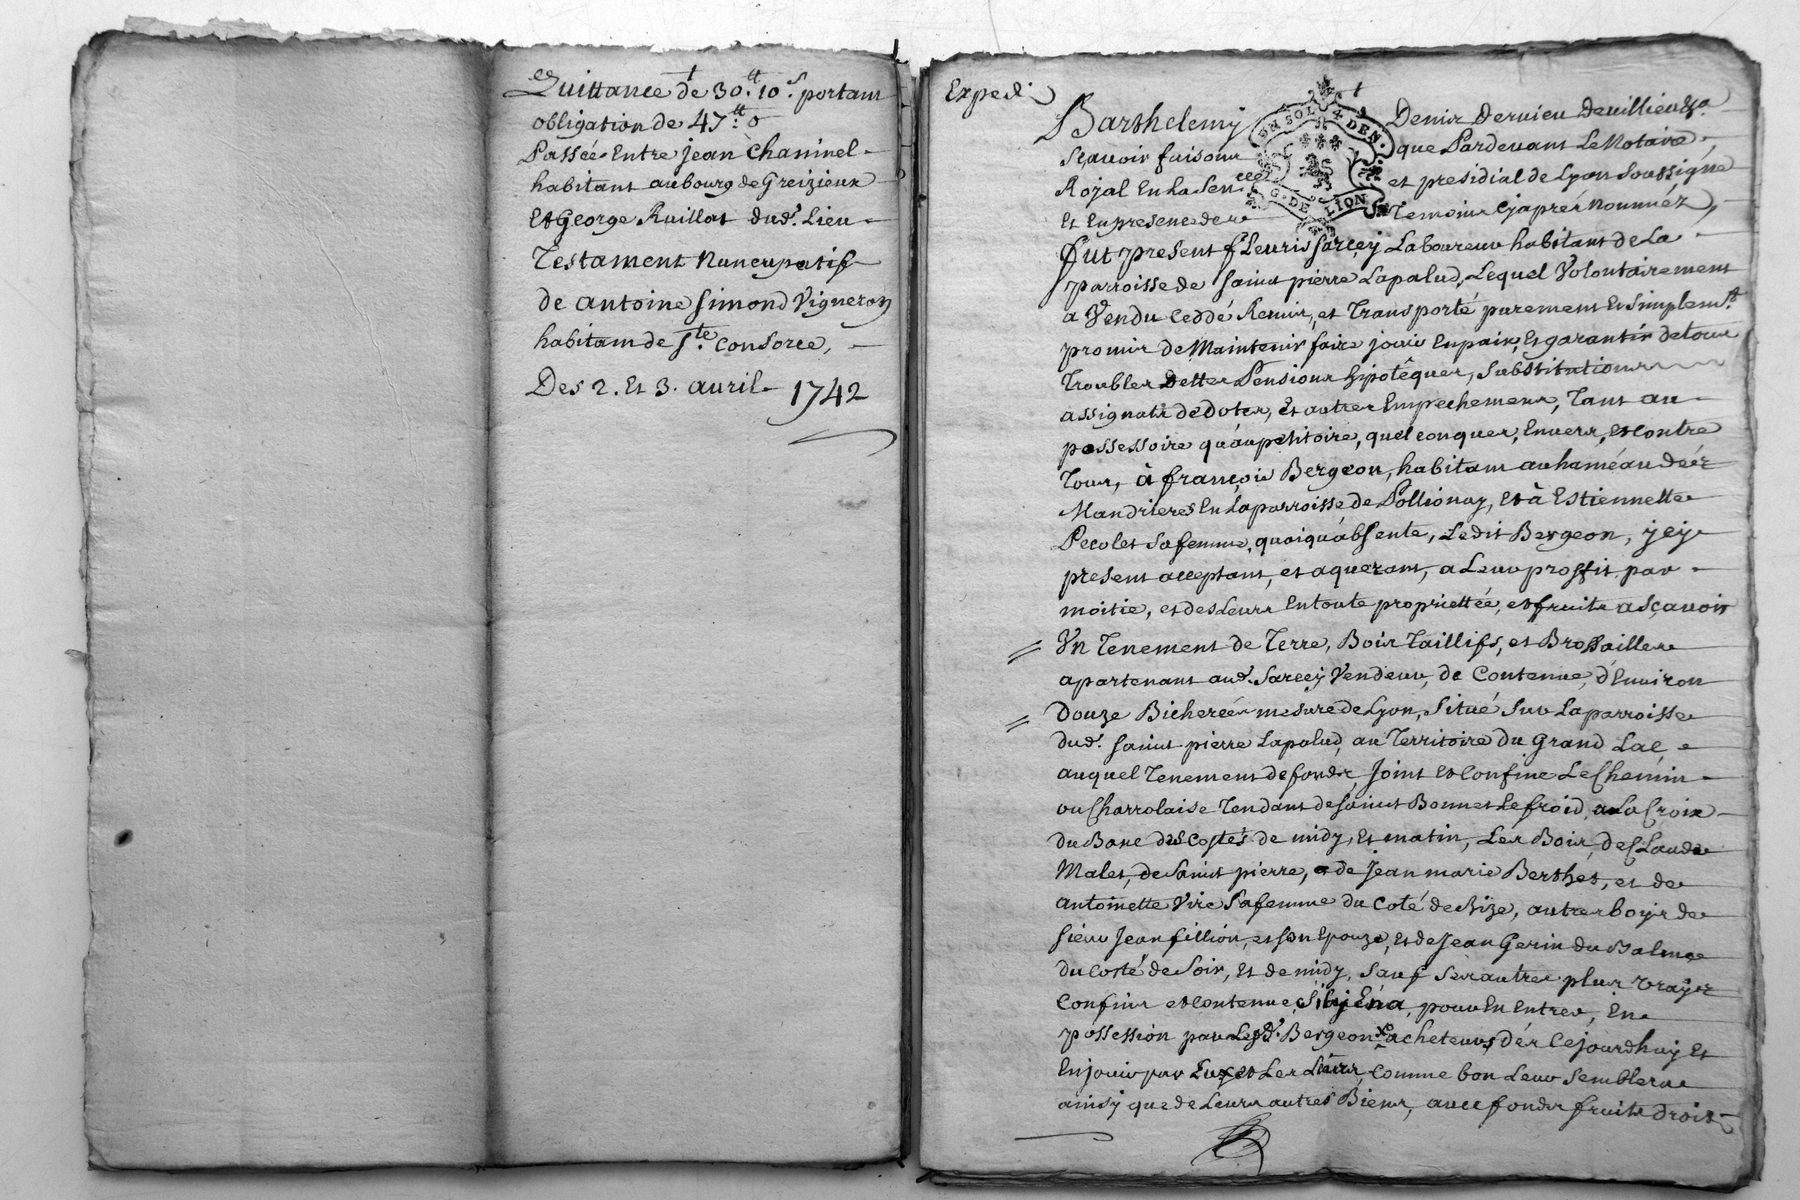 Quittance de 30.tt 10.s portant
obligation de 47.tt
Passée Entre Jean Chaninel
habitant au bourg de Greizieux
Et George Ruillat dud.t Lieu
Testament Nuncupatif
de Antoine Simond Vigneron
habitant de S.te Consorce,
Des 2. Et 3. avril 1742
Exped.
Barthelemy Denis Dervieu Devillieu &a
Scavoir faisons que Pardevant Le Notaire
Royal En La Sen.cée et presidial de Lyon Soussigné
Et En presence de Temoins Cy aprés Nomméz,
UN SOL 4 DEN.
G. DE LION
fut present fleuris Sarcey Laboureur habitant de La
parroisse de Saint pierre Lapalud, Lequel Volontairement
a Vendu Ceddé Remis, et Transporté purement Et Simplem.t
promis de Maintenir faire jouir En paix, Et garantir de tous
Troubles Dettes Pensions hipotêques, Substitutions
assignats de Dotes, Et autres Empechemens, Tant au
possessoire qu'au petitoire, quelconques, Envers, et contre
Tous, à françois Bergeon, habitant au haméau des
Mandrieres En La parroisse de Pollionay, et à Estiennette
Pecolet Sa femme, quoiqu'absente, Ledit Bergeon, jcy
present acceptant, et aquerant, a Leur proffit par
moitie, et des Leurs En toute propriettée, et fruits a sçavoir
Un Tenement de Terre, Bois Taillifs, et Brossailles
apartenant aud.t Sarcey Vendeur, de Contenue, d'Environ
Douze Bicherées mesure de Lyon, Situé Sur La parroisse
dud.t Saint pierre Lapalud, au Territoire du Grand Lac
auquel Tenement de fonds Joint et Confine Le Chemin
ou Charrolaise Tendant de Saint Bonnet Le froid, a La Croix
du Banc des Costés de midy, Et matin, Les Bois, de Claude
Malet, de Saint pierre, de Jean marie Berthet, et de
antoinette Vire Sa femme du Coté de Bize, autres boys de
Sieur Jean fillion, et Son Epouze, Et de Jean Gerin du Balmes
du Costé de Soir, Et de midy, Sauf Ses autres plus vrays
Confins et contenue, Si by En a, pour En Entrer, En
possession par Lesd.t Bergeon acheteurs, dés Cejourdhuy Et
En jouir par Eux et Les Leurs, Comme bon Leur Semblera
ainsy que de Leurs autres Biens, avec fonds fruits droit